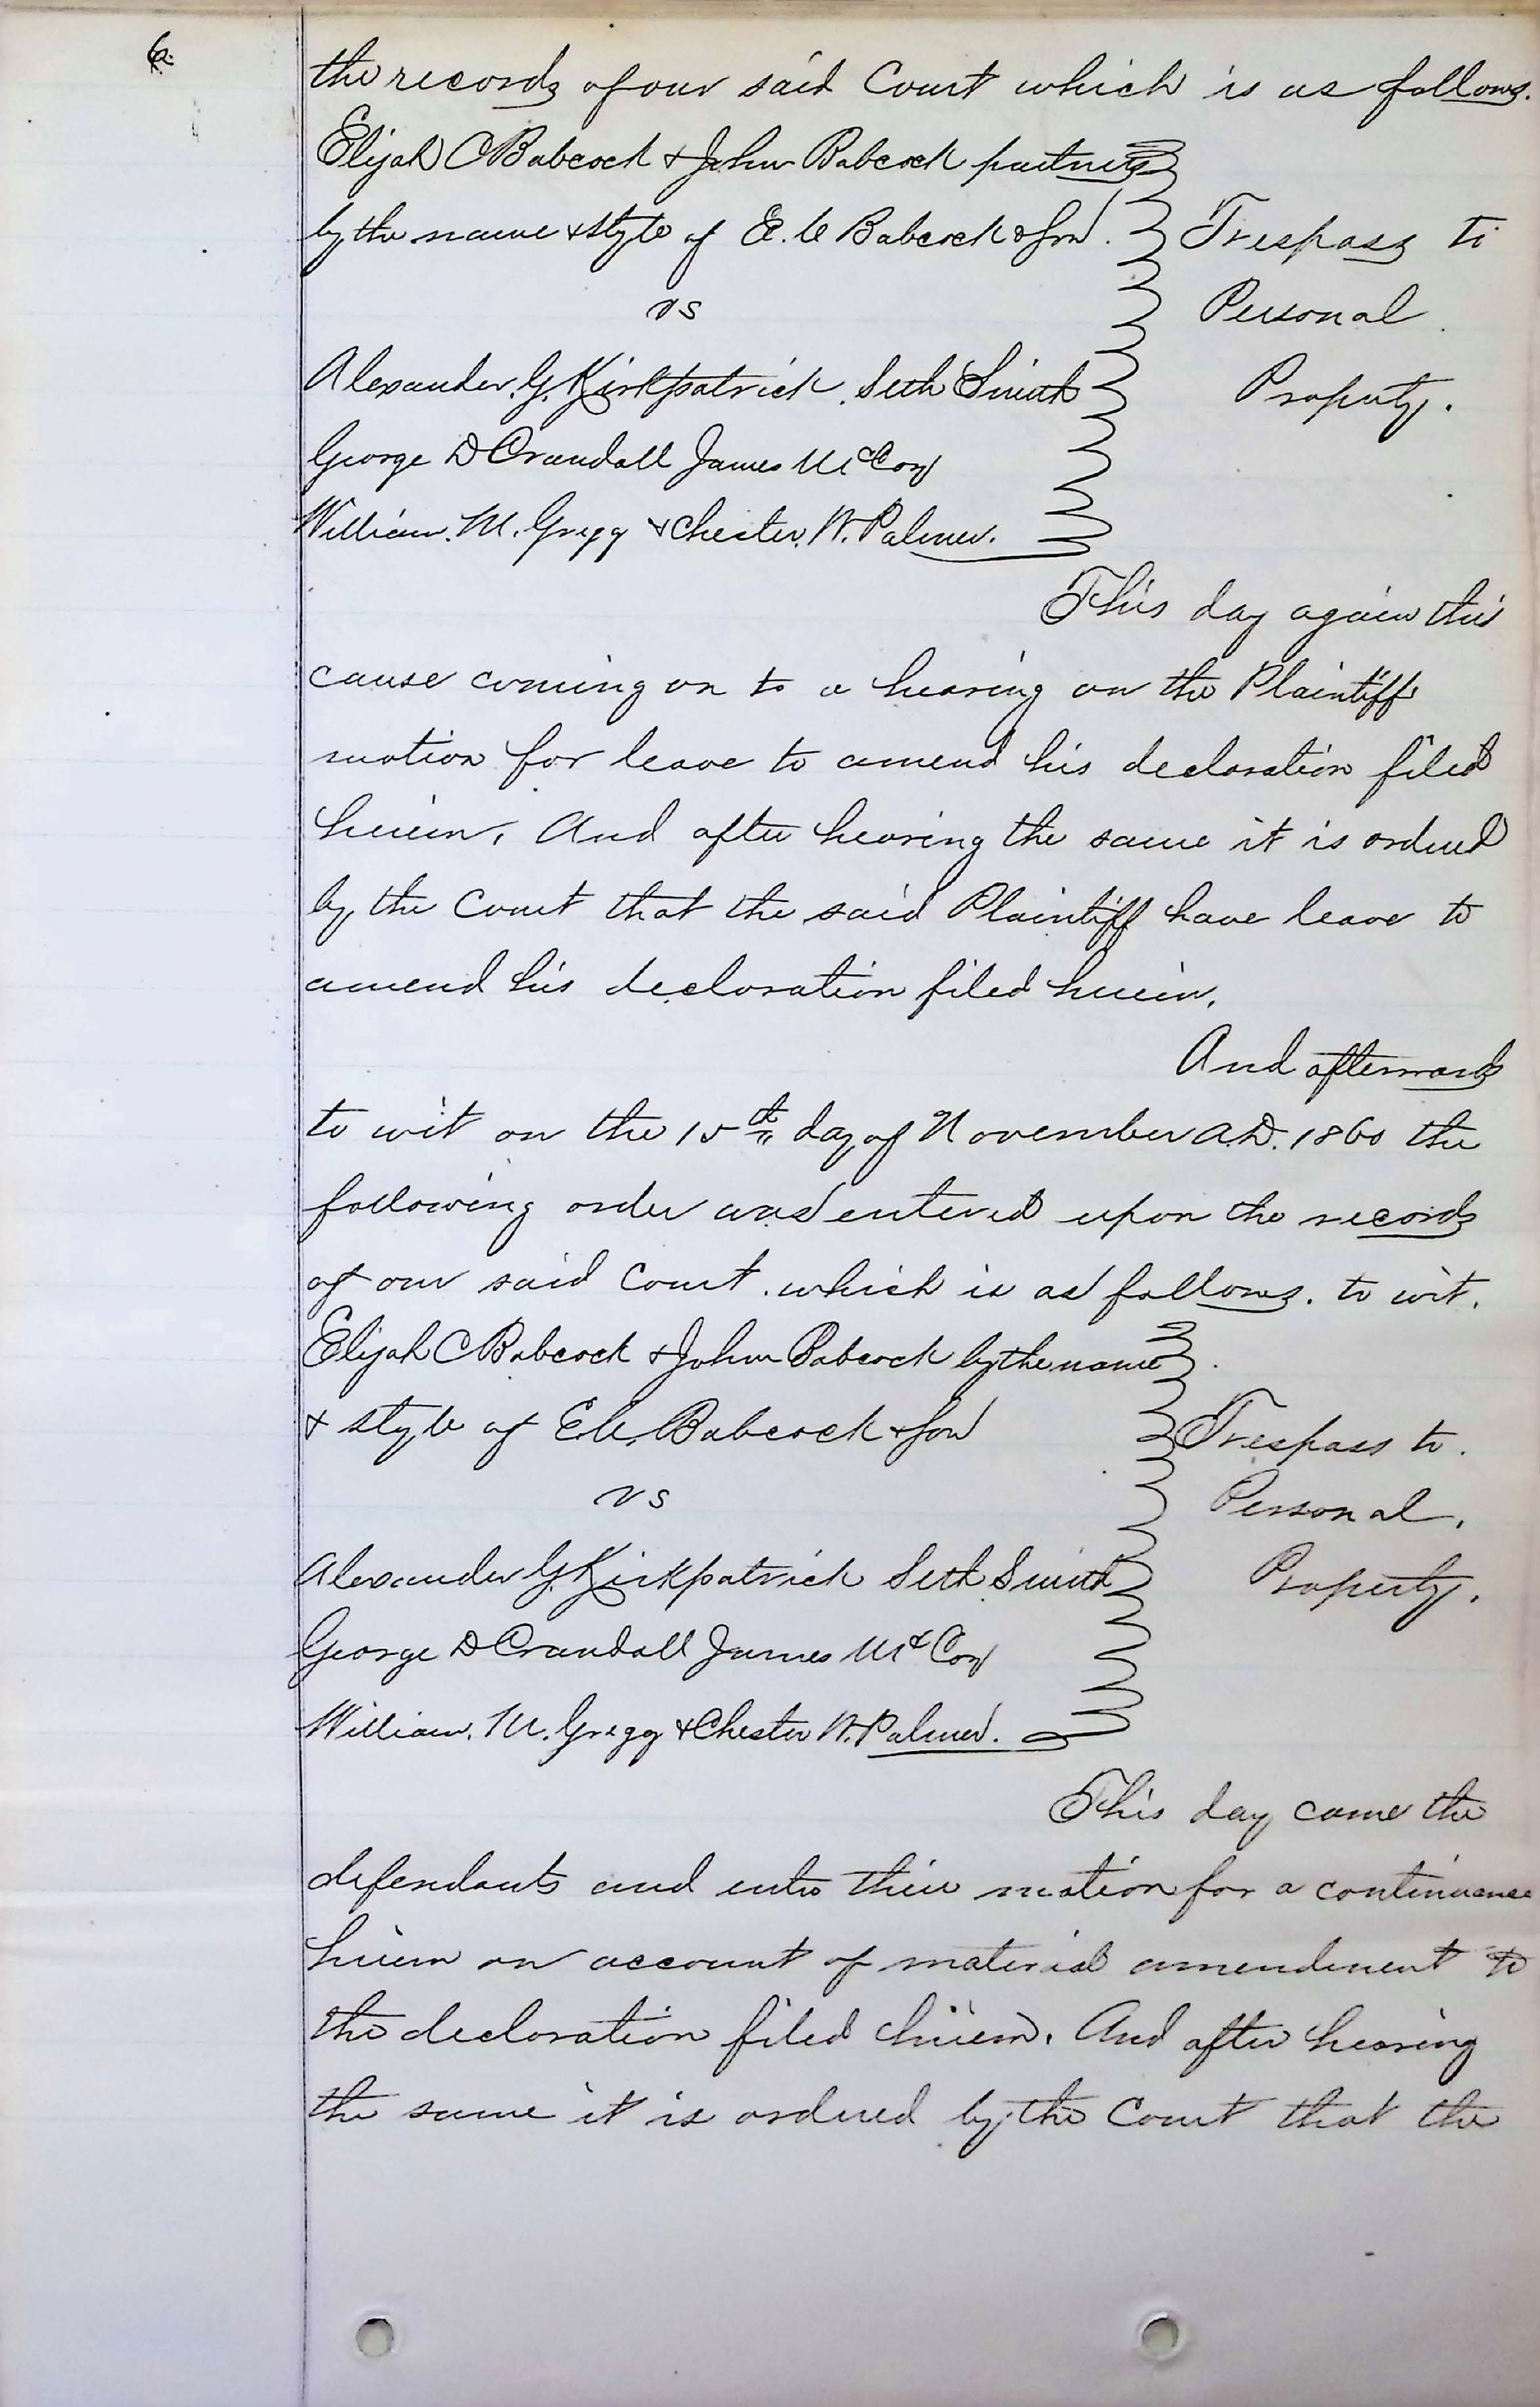 6.
the records of our said Court which is as follows.
Elijah C Babcock & John Babcock partners
by the name & style of E. C Babcock & Son. Trespass to
vs Personal
Alexander. G. Kirkpatrick. Seth Smith Property.
George D Crandall James McCoy
William. M. Gregg & Chester. W. Palmer.
This day again this
cause coming on to a hearing on the Plaintiff
motion for leave to amend his declaration filed
herein. And after hearing the same it is ordered
by the Court that the said Plaintiff have leave to
amend his declaration filed herein.
And afterwards
to wit on the 15th day of November A.D. 1860 the
following order was entered upon the records
of our said Court. which is as follows. to wit.
Elijah C Babcock & John Babcock by the name
& style of E.C. Babcock & Son Trespass to.
vs Personal.
Alexander G Kirkpatrick Seth Smith Property.
George D Crandall James McCoy
William. M. Gregg & Chester W. Palmer.
This day came the
defendants and enter their motion for a continuance
herein on account of material amendment to
the declaration filed herein. And after hearing
the same it is ordered by the Court that the